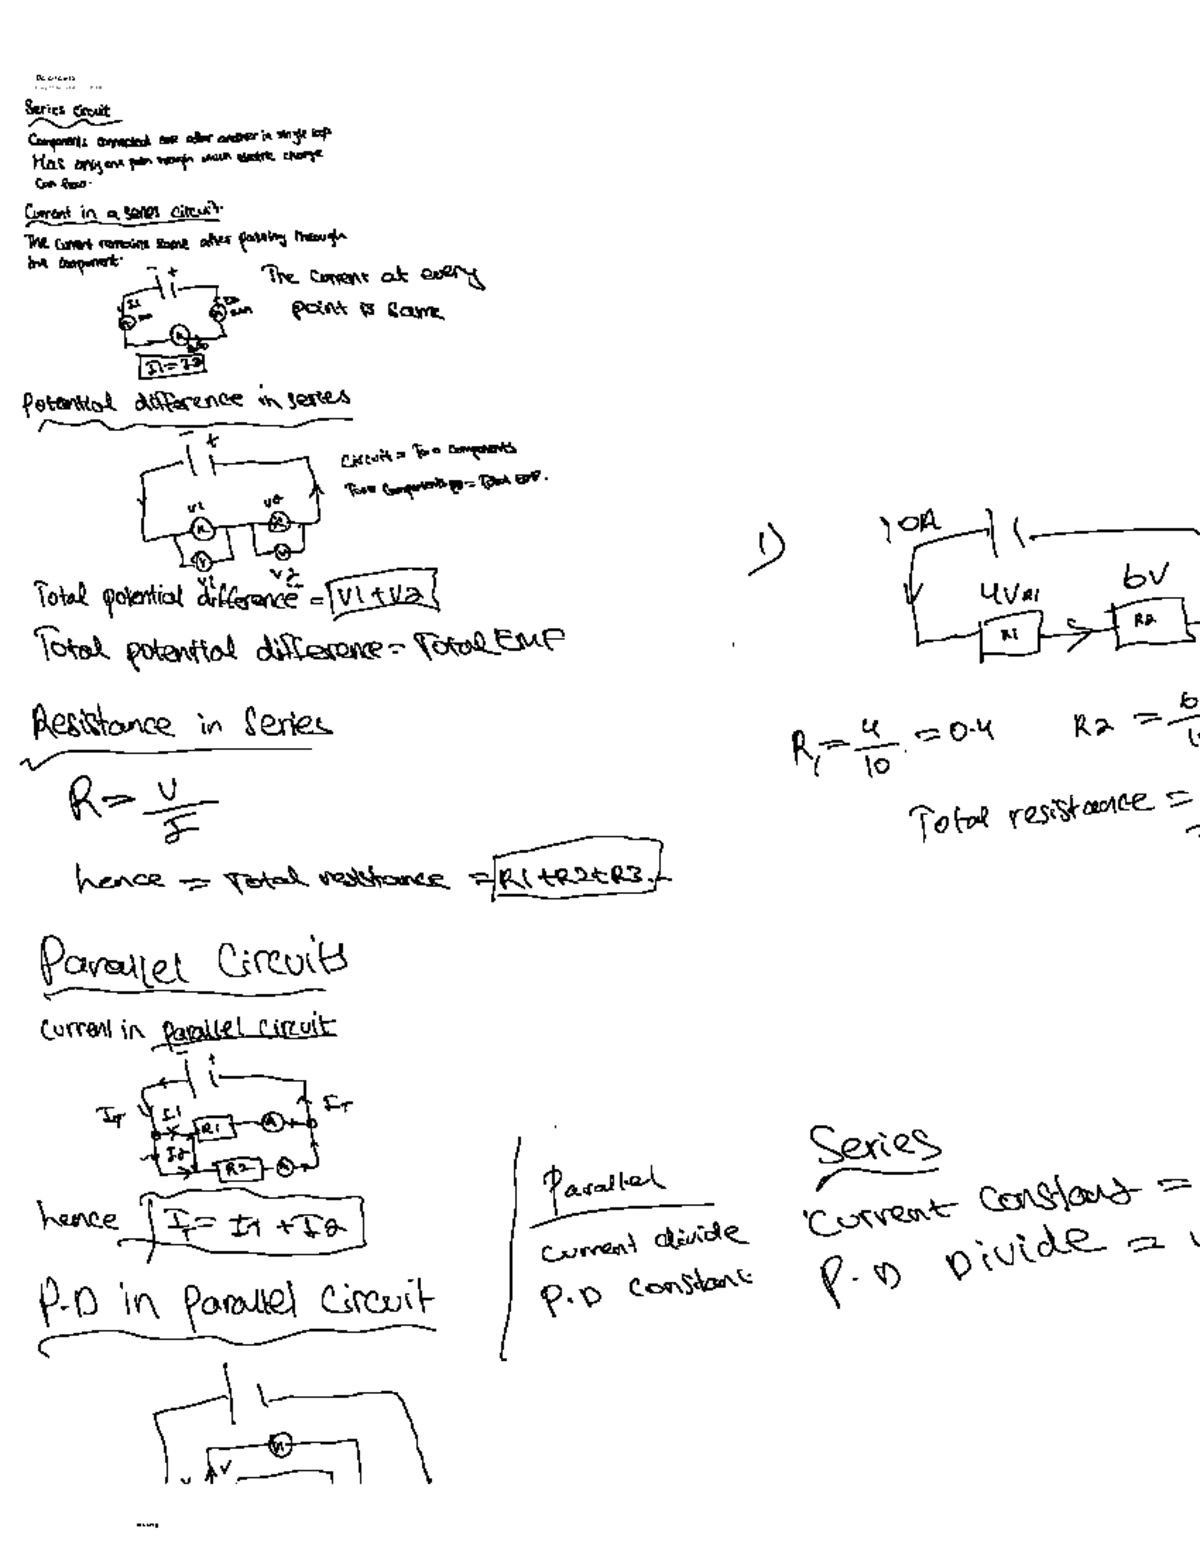 Dc circuits
Series Circuit
Components connected one after another in single loop
Has only one path through which electric charge
Can flow.
Current in a series circuit.
The current remains same after passing through
the component.
- +
The current at every
point is same
I1
A
A
A
I1=I2
Potential difference in series
- +
Circuit = Two components
Total EMF.
V1
V2
V
V
V1
V2
Total potential difference = V1+V2
Total potential difference = Total EMF
Resistance in Series
R = V
I
hence = Total resistance = R1+R2+R3
Parallel Circuits
Current in parallel circuit
- +
IT
I1
R1
A
IT
I2
R2
A
hence IT = I1 + I2
P.D in parallel Circuit
V
1)
10A
4V R1
6V
R1
R2
R1 = 4
10 = 0.4
R2 = 6
Total resistance =
Parallel
Current divide
P.D constant
Series
Current Constant =
P.D Divide =